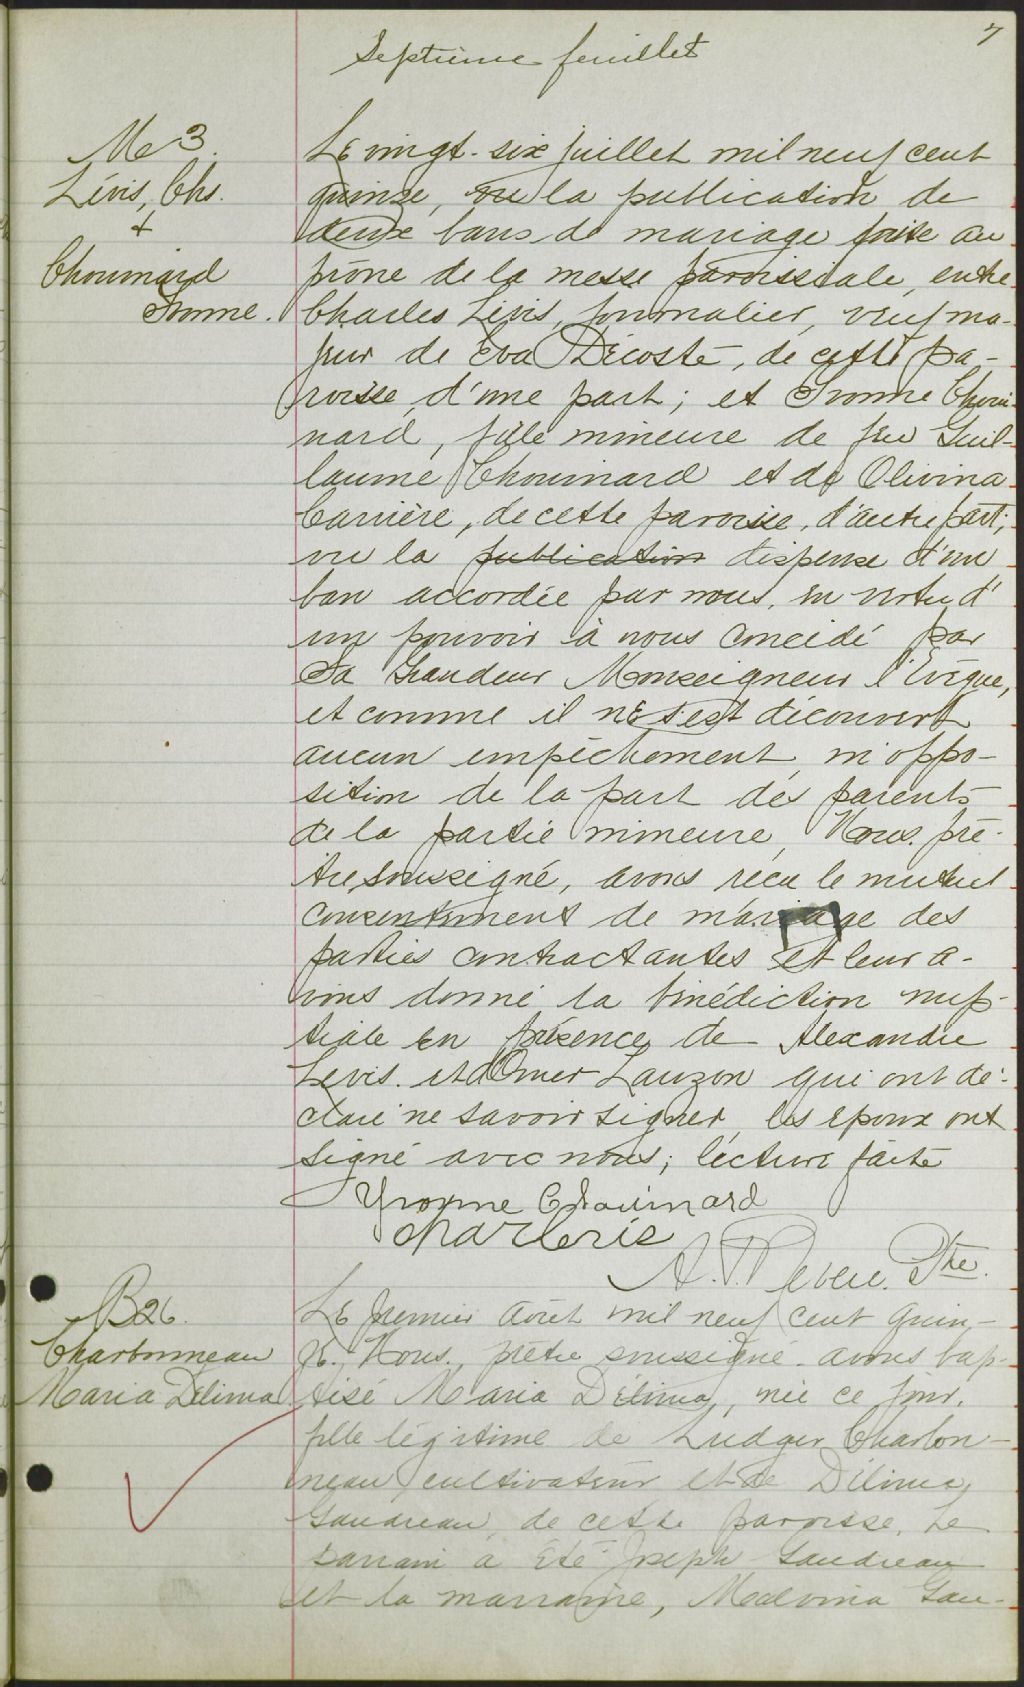 7
Septième feuillet
M 3.
Lévis, Chs.
+
Chouinard
Ivonne.
Le vingt-six juillet mil neuf cent
quinze, vu la publication de
deux bans de mariage faite au
prône de la messe paroissiale, entre
Charles Lévis, journalier, veuf ma-
jeur de Eva Décoste, de cette pa-
roisse, d'une part; et Ivonne Choui-
nard, fille mineure de feu Guil-
laume Chouinard et de Olivina
Carrière, de cette paroisse, d'autre part;
vu la publication dispense d'un
ban accordée par nous, en vertu d'
un pouvoir à nous concédé par
Sa Grandeur Monseigneur l'Évêque,
et comme il ne s'est découvert
aucun empêchement, ni oppo-
sition de la part des parents
de la partie mineure, Nous, prê-
tre soussigné, avons reçu le mutuel
consentement de mariage des
parties contractantes et leur a-
vons donné la bénédiction nup-
tiale en présence de Alexandre
Levis et d'Omer Lauzon qui ont dé-
claré ne savoir signer, les époux ont
signé avec nous; lecture faite
Yvonne Chouinard
A. T. Ptre.
B 26.
Charbonneau
Maria Délima
Le premier août mil neuf cent quin-
ze, Nous, prêtre soussigné avons bap-
tisé Maria Délima, née ce jour,
fille légitime de Ludger Charbon-
neau, cultivateur et de Délima
Gaudreau, de cette paroisse. Le
parrain a été Joseph Gaudreau
et la marraine, Malvina Gau-